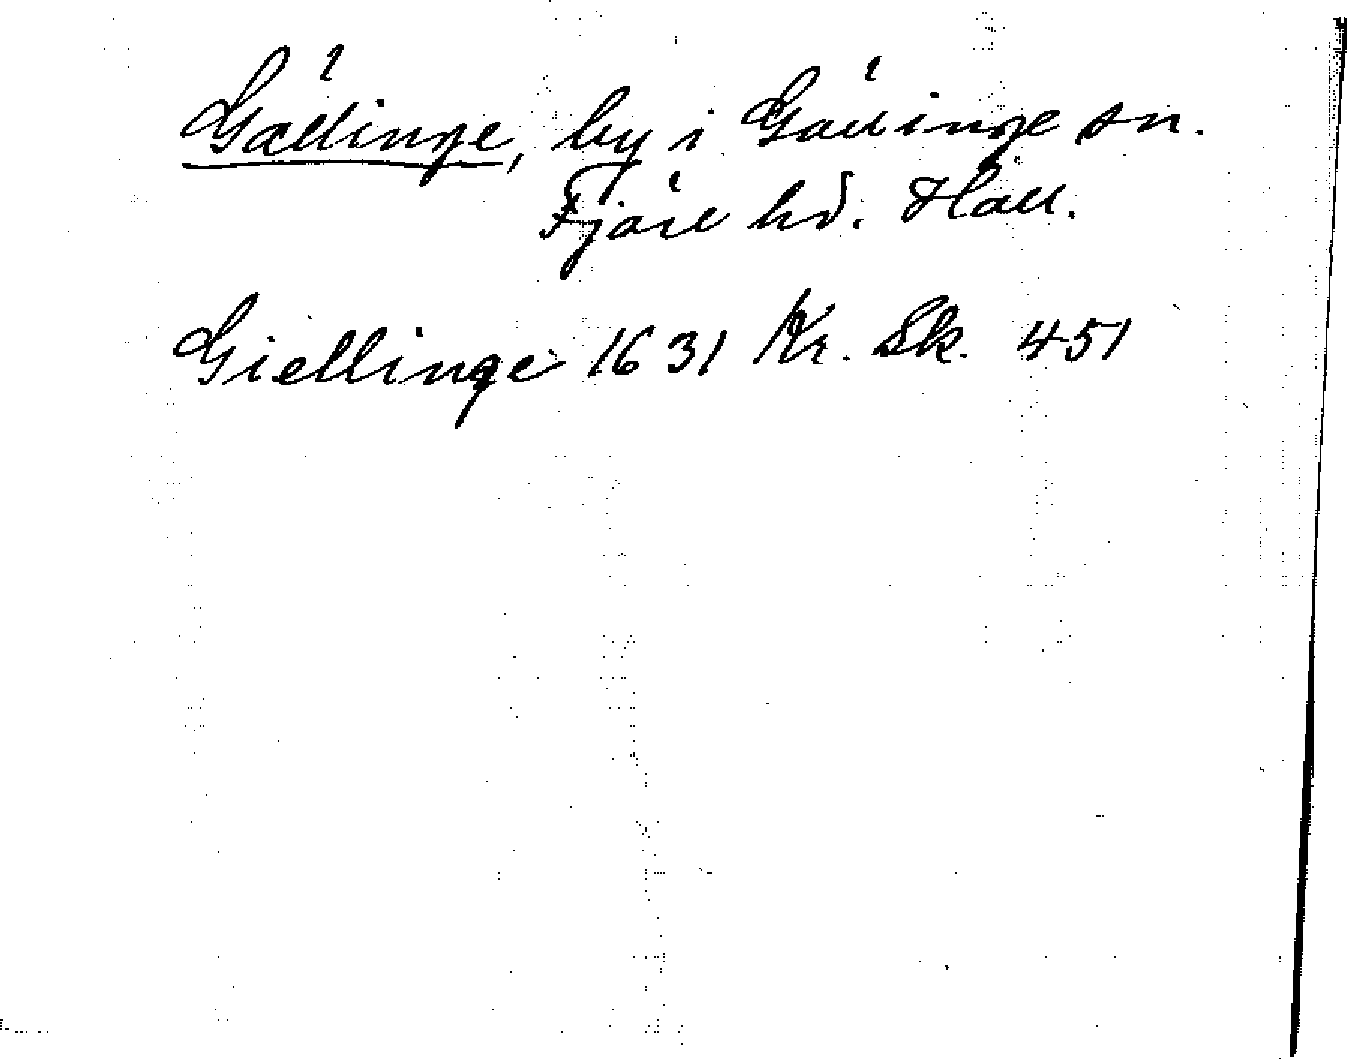 Gällinge, by i Gällinge sn.
Fjäre hd. Hall.
Giellinge 1631 Kr. Sk. 451